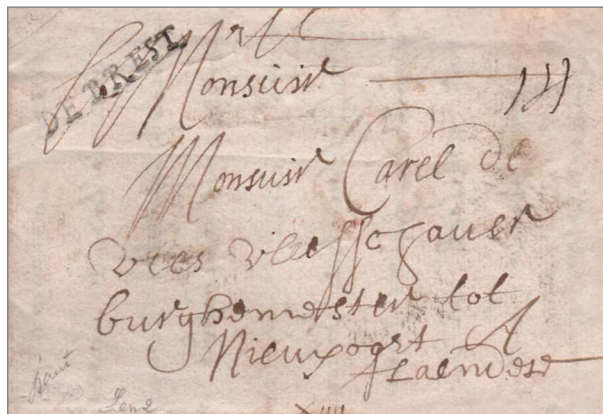 DE BREST
Monsieur
Monsieur Carel de
vleesschauer
burghemester tot
Nieupoort
flaendere